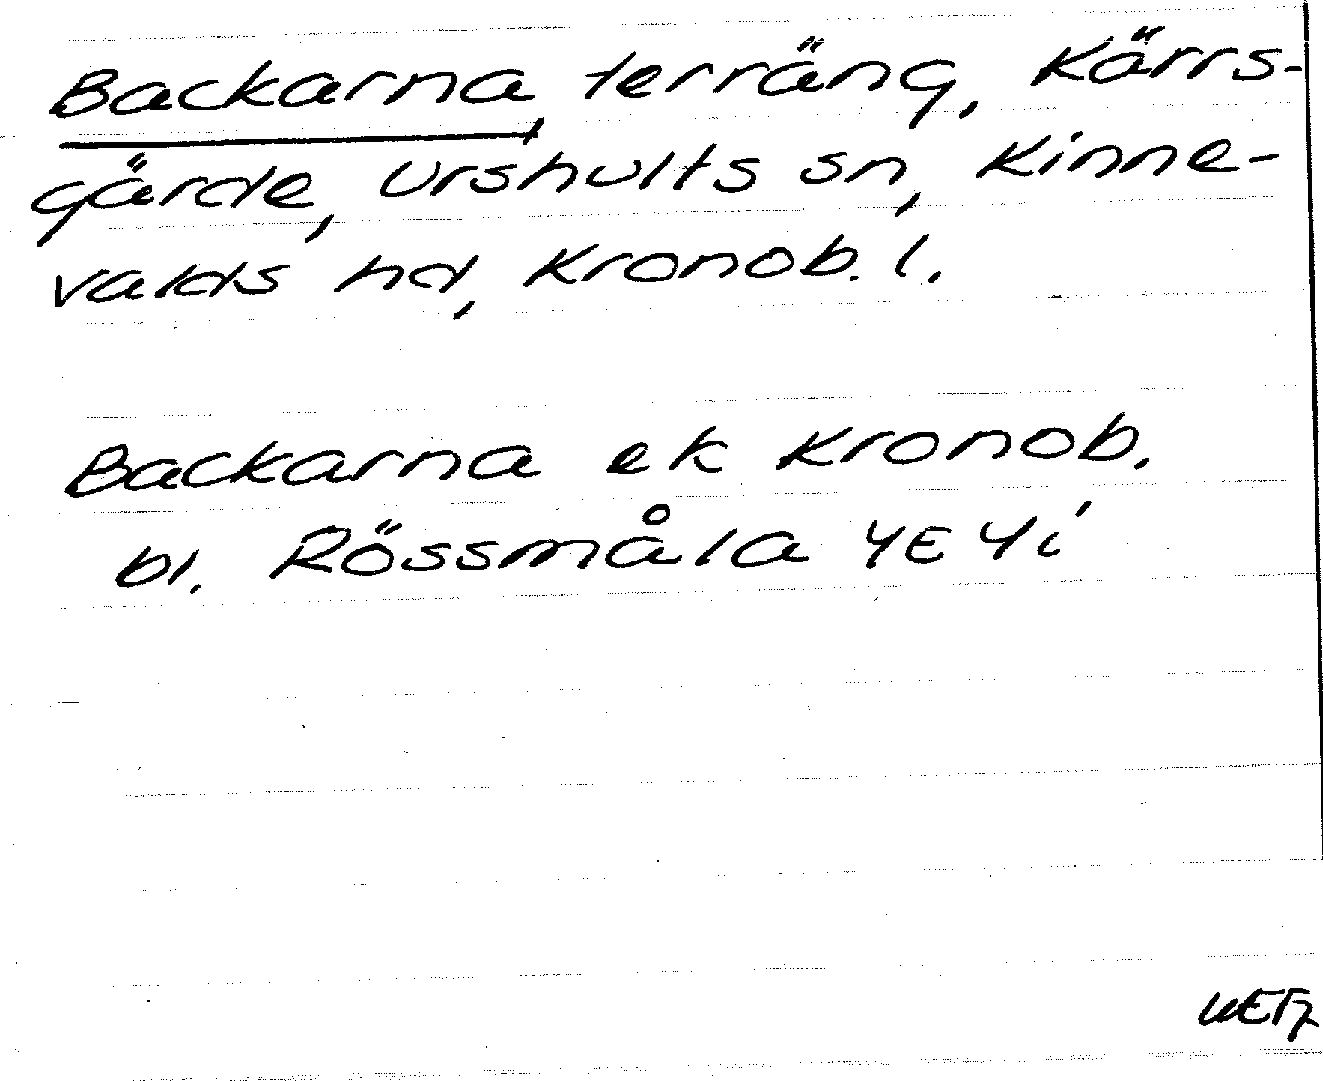 Backarna, terräng, Kärrs-
gärde, Urshults sn, Kinne-
valds hd, Kronob. l.
Backarna ek Kronob.
bl. Rössmåla 4E 4i